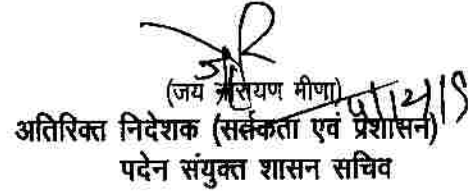 (जय नारायण मीणा)
अतिरिक्त निदेशक (सर्तकता एवं प्रशासन)
पदेन संयुक्त शासन सचिव